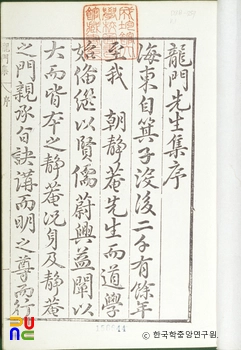 龍門先生集序
海東自箕子沒後二千有餘年
至我 朝靜庵先生而道學
始倡繼以賢儒蔚興益闡以
大而皆本之靜庵況身及靜庵
之門親承旨訣講而明之尊而行
序
ⓒ 한국학중앙연구원